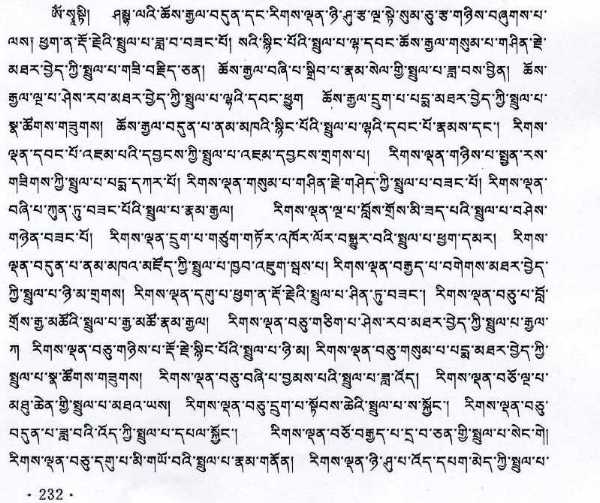 ༀ་སྭསྟི། ཤམྦྷ་ལའི་ཆོས་རྒྱལ་བདུན་དང་རིགས་ལྡན་ཉི་ཤུ་རྩ་ལྔ་སྟེ་སུམ་ཅུ་རྩ་གཉིས་བཞུགས་པ་
ལས། ཕྱག་ན་རྡོ་རྗེའི་སྤྲུལ་པ་ཟླ་བ་བཟང་པོ། སའི་སྙིང་པོའི་སྤྲུལ་པ་ལྷ་དབང་ཆོས་རྒྱལ་གསུམ་པ་གཤིན་རྗེ་
མཐར་བྱེད་ཀྱི་སྤྲུལ་པ་གཟི་བརྗིད་ཅན། ཆོས་རྒྱལ་བཞི་པ་སྒྲིབ་པ་རྣམ་སེལ་གྱི་སྤྲུལ་པ་ཟླ་བས་བྱིན། ཆོས་
རྒྱལ་ལྔ་པ་ཤེས་རབ་མཐར་བྱེད་ཀྱི་སྤྲུལ་པ་ལྷའི་དབང་ཕྱུག ཆོས་རྒྱལ་དྲུག་པ་པདྨ་མཐར་བྱེད་ཀྱི་སྤྲུལ་པ་
སྣ་ཚོགས་གཟུགས། ཆོས་རྒྱལ་བདུན་པ་ནམ་མཁའི་སྙིང་པོའི་སྤྲུལ་པ་ལྷའི་དབང་པོ་རྣམས་དང་། རིགས་
ལྡན་དབང་པོ་འཇམ་པའི་དབྱངས་ཀྱི་སྤྲུལ་པ་འཇམ་དབྱངས་གྲགས་པ། རིགས་ལྡན་གཉིས་པ་སྤྱན་རས་
གཟིགས་ཀྱི་སྤྲུལ་པ་པདྨ་དཀར་པོ། རིགས་ལྡན་གསུམ་པ་གཤིན་རྗེ་གཤེད་ཀྱི་སྤྲུལ་པ་བཟང་པོ། རིགས་ལྡན་
བཞི་པ་ཀུན་ཏུ་བཟང་པོའི་སྤྲུལ་པ་རྣམ་རྒྱལ། རིགས་ལྡན་ལྔ་པ་བློས་གྲོས་མི་ཟད་པའི་སྤྲུལ་པ་བཤེས་
གཉེན་བཟང་པོ། རིགས་ལྡན་དྲུག་པ་གཙུག་གཏོར་འཁོར་ལོར་བསྒྱུར་བའི་སྤྲུལ་པ་ཕྱག་དམར། རིགས་
ལྡན་བདུན་པ་ནམ་མཁའ་མཛོད་ཀྱི་སྤྲུལ་པ་ཁྱབ་འཇུག་སྦས་པ། རིགས་ལྡན་བརྒྱད་པ་བགེགས་མཐར་བྱེད་
ཀྱི་སྤྲུལ་པ་ཉི་མ་གྲགས། རིགས་ལྡན་དགུ་པ་ཕྱག་ན་རྡོ་རྗེའི་སྤྲུལ་པ་ཤིན་ཏུ་བཟང་། རིགས་ལྡན་བཅུ་པ་བློ་
གྲོས་རྒྱ་མཚོའི་སྤྲུལ་པ་རྒྱ་མཚོ་རྣམ་རྒྱལ། རིགས་ལྡན་བཅུ་གཅིག་པ་ཤེས་རབ་མཐར་བྱེད་ཀྱི་སྤྲུལ་པ་རྒྱལ་
ཀ། རིགས་ལྡན་བཅུ་གཉིས་པ་རྡོ་རྗེ་སྙིང་པོའི་སྤྲུལ་པ་ཉི་མ། རིགས་ལྡན་བཅུ་གསུམ་པ་པདྨ་མཐར་བྱེད་ཀྱི་
སྤྲུལ་པ་སྣ་ཚོགས་གཟུགས། རིགས་ལྡན་བཅུ་བཞི་པ་བྱམས་པའི་སྤྲུལ་པ་ཟླ་འོད། རིགས་ལྡན་བཅོ་ལྔ་པ་
མཐུ་ཆེན་གྱི་སྤྲུལ་པ་མཐའ་ཡས། རིགས་ལྡན་བཅུ་དྲུག་པ་སྟོབས་ཆེའི་སྤྲུལ་པ་ས་སྐྱོང་། རིགས་ལྡན་བཅུ་
བདུན་པ་ཟླ་བའི་འོད་ཀྱི་སྤྲུལ་པ་དཔལ་སྐྱོང་། རིགས་ལྡན་བཅོ་བརྒྱད་པ་དྲ་བ་ཅན་གྱི་སྤྲུལ་པ་སེང་གེ།
རིགས་ལྡན་བཅུ་དགུ་པ་མི་གཡོ་བའི་སྤྲུལ་པ་རྣམ་གནོན། རིགས་ལྡན་ཉི་ཤུ་པ་འོད་དཔག་མེད་ཀྱི་སྤྲུལ་པ་
· 232 ·